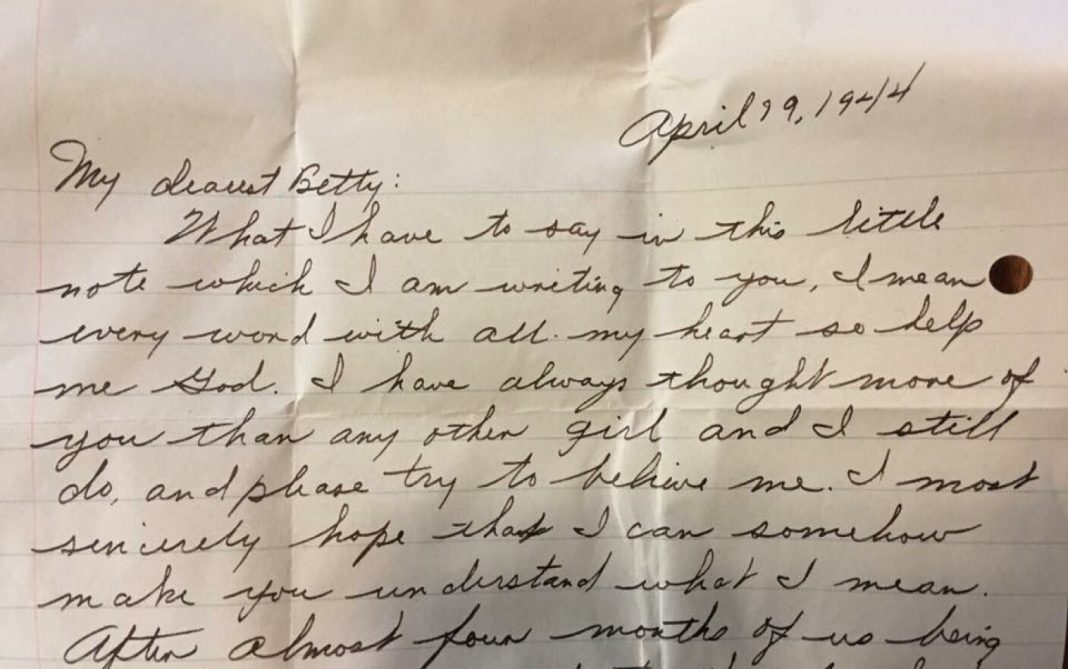 April 29, 1944
My dearest Betty:
What I have to say in this little
note which I am writing to you, I mean
every word with all my heart so help
me God. I have always thought more of
you than any other girl and I still
do, and please try to believe me. I most
sincerely hope that I can somehow
make you understand what I mean.
After almost four months of us being